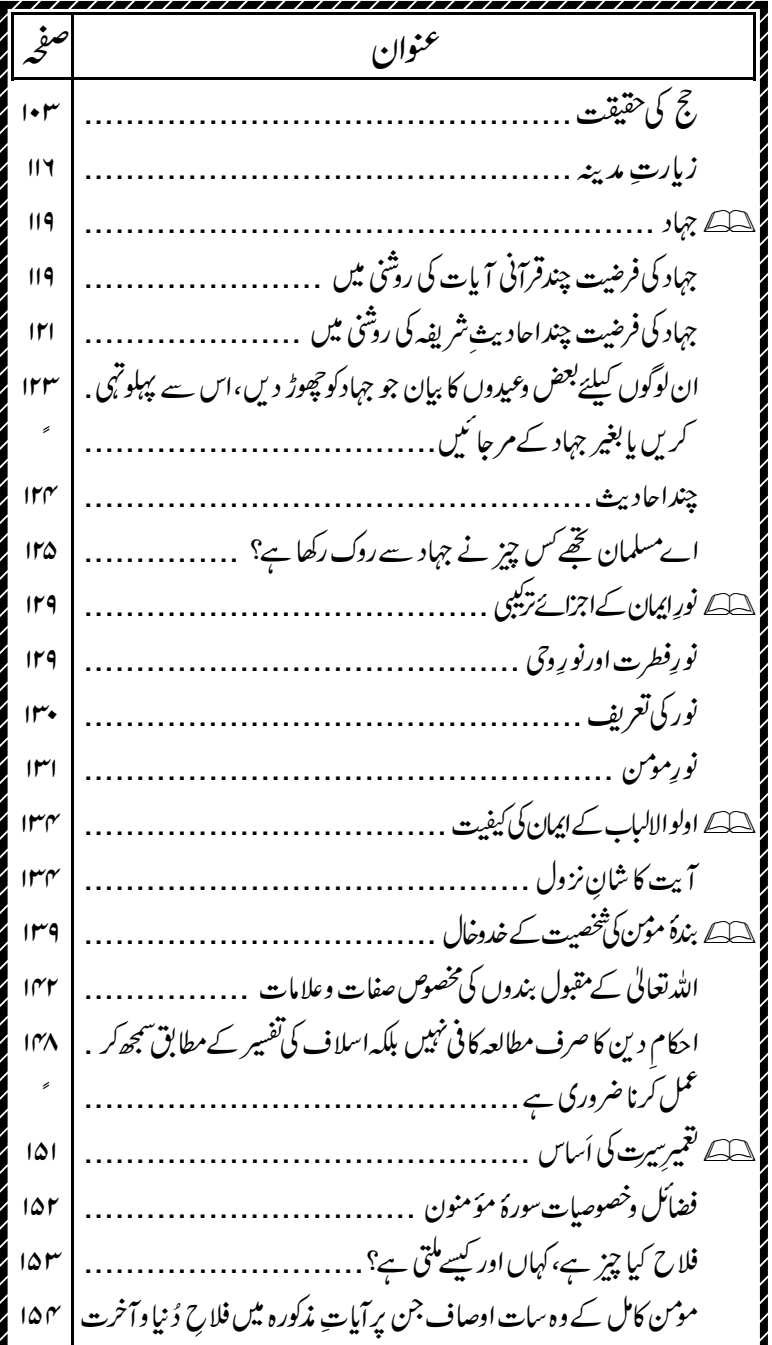 عنوان صفحہ
حج کی حقیقت ................................................ ۱۰۳
زیارتِ مدینہ ................................................ ۱۱۶
جہاد ....................................................... ۱۱۹
جہاد کی فرضیت چند قرآنی آیات کی روشنی میں ....................... ۱۱۹
جہاد کی فرضیت چند احادیثِ شریفہ کی روشنی میں ..................... ۱۲۱
ان لوگوں کیلئے بعض وعیدوں کا بیان جو جہاد کو چھوڑ دیں، اس سے پہلو تہی . ۱۲۳
کریں یا بغیر جہاد کے مر جائیں.................................. ً
چند احادیث ................................................. ۱۲۴
اے مسلمان تجھے کس چیز نے جہاد سے روک رکھا ہے؟ ............... ۱۲۵
نورِ ایمان کے اجزائے ترکیبی ....................................... ۱۲۹
نورِ فطرت اور نورِ وحی .......................................... ۱۲۹
نور کی تعریف ................................................ ۱۳۰
نورِ مومن ................................................... ۱۳۱
اولو الالباب کے ایمان کی کیفیت ................................... ۱۳۴
آیت کا شانِ نزول ........................................... ۱۳۴
بندۂ مؤمن کی شخصیت کے خدوخال .................................. ۱۳۹
اللہ تعالیٰ کے مقبول بندوں کی مخصوص صفات و علامات ................ ۱۴۲
احکامِ دین کا صرف مطالعہ کافی نہیں بلکہ اسلاف کی تفسیر کے مطابق سمجھ کر . ۱۴۸
عمل کرنا ضروری ہے .......................................... ً
تعمیرِ سیرت کی اَساس ........................................... ۱۵۱
فضائل و خصوصیات سورۂ مؤمنون ................................ ۱۵۲
فلاح کیا چیز ہے، کہاں اور کیسے ملتی ہے؟ ........................... ۱۵۳
مومن کامل کے وہ سات اوصاف جن پر آیاتِ مذکورہ میں فلاحِ دُنیا و آخرت ۱۵۴